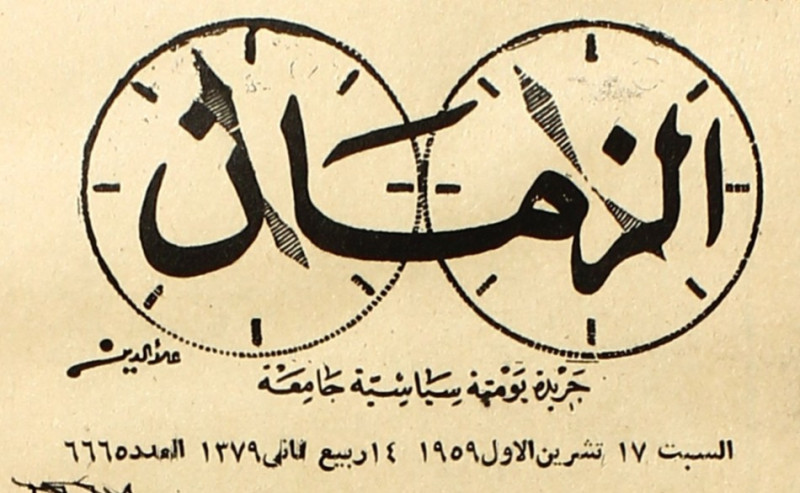 الزمان
علاء الدين
جَرِيْدة يَوْميَّة سِيَاسْيَّة جَامِعَة
السبت ١٧ تشرين الاول ١٩٥٩ ١٤ ربيع ثاني ١٣٧٩ العدد ٦٦٦٥